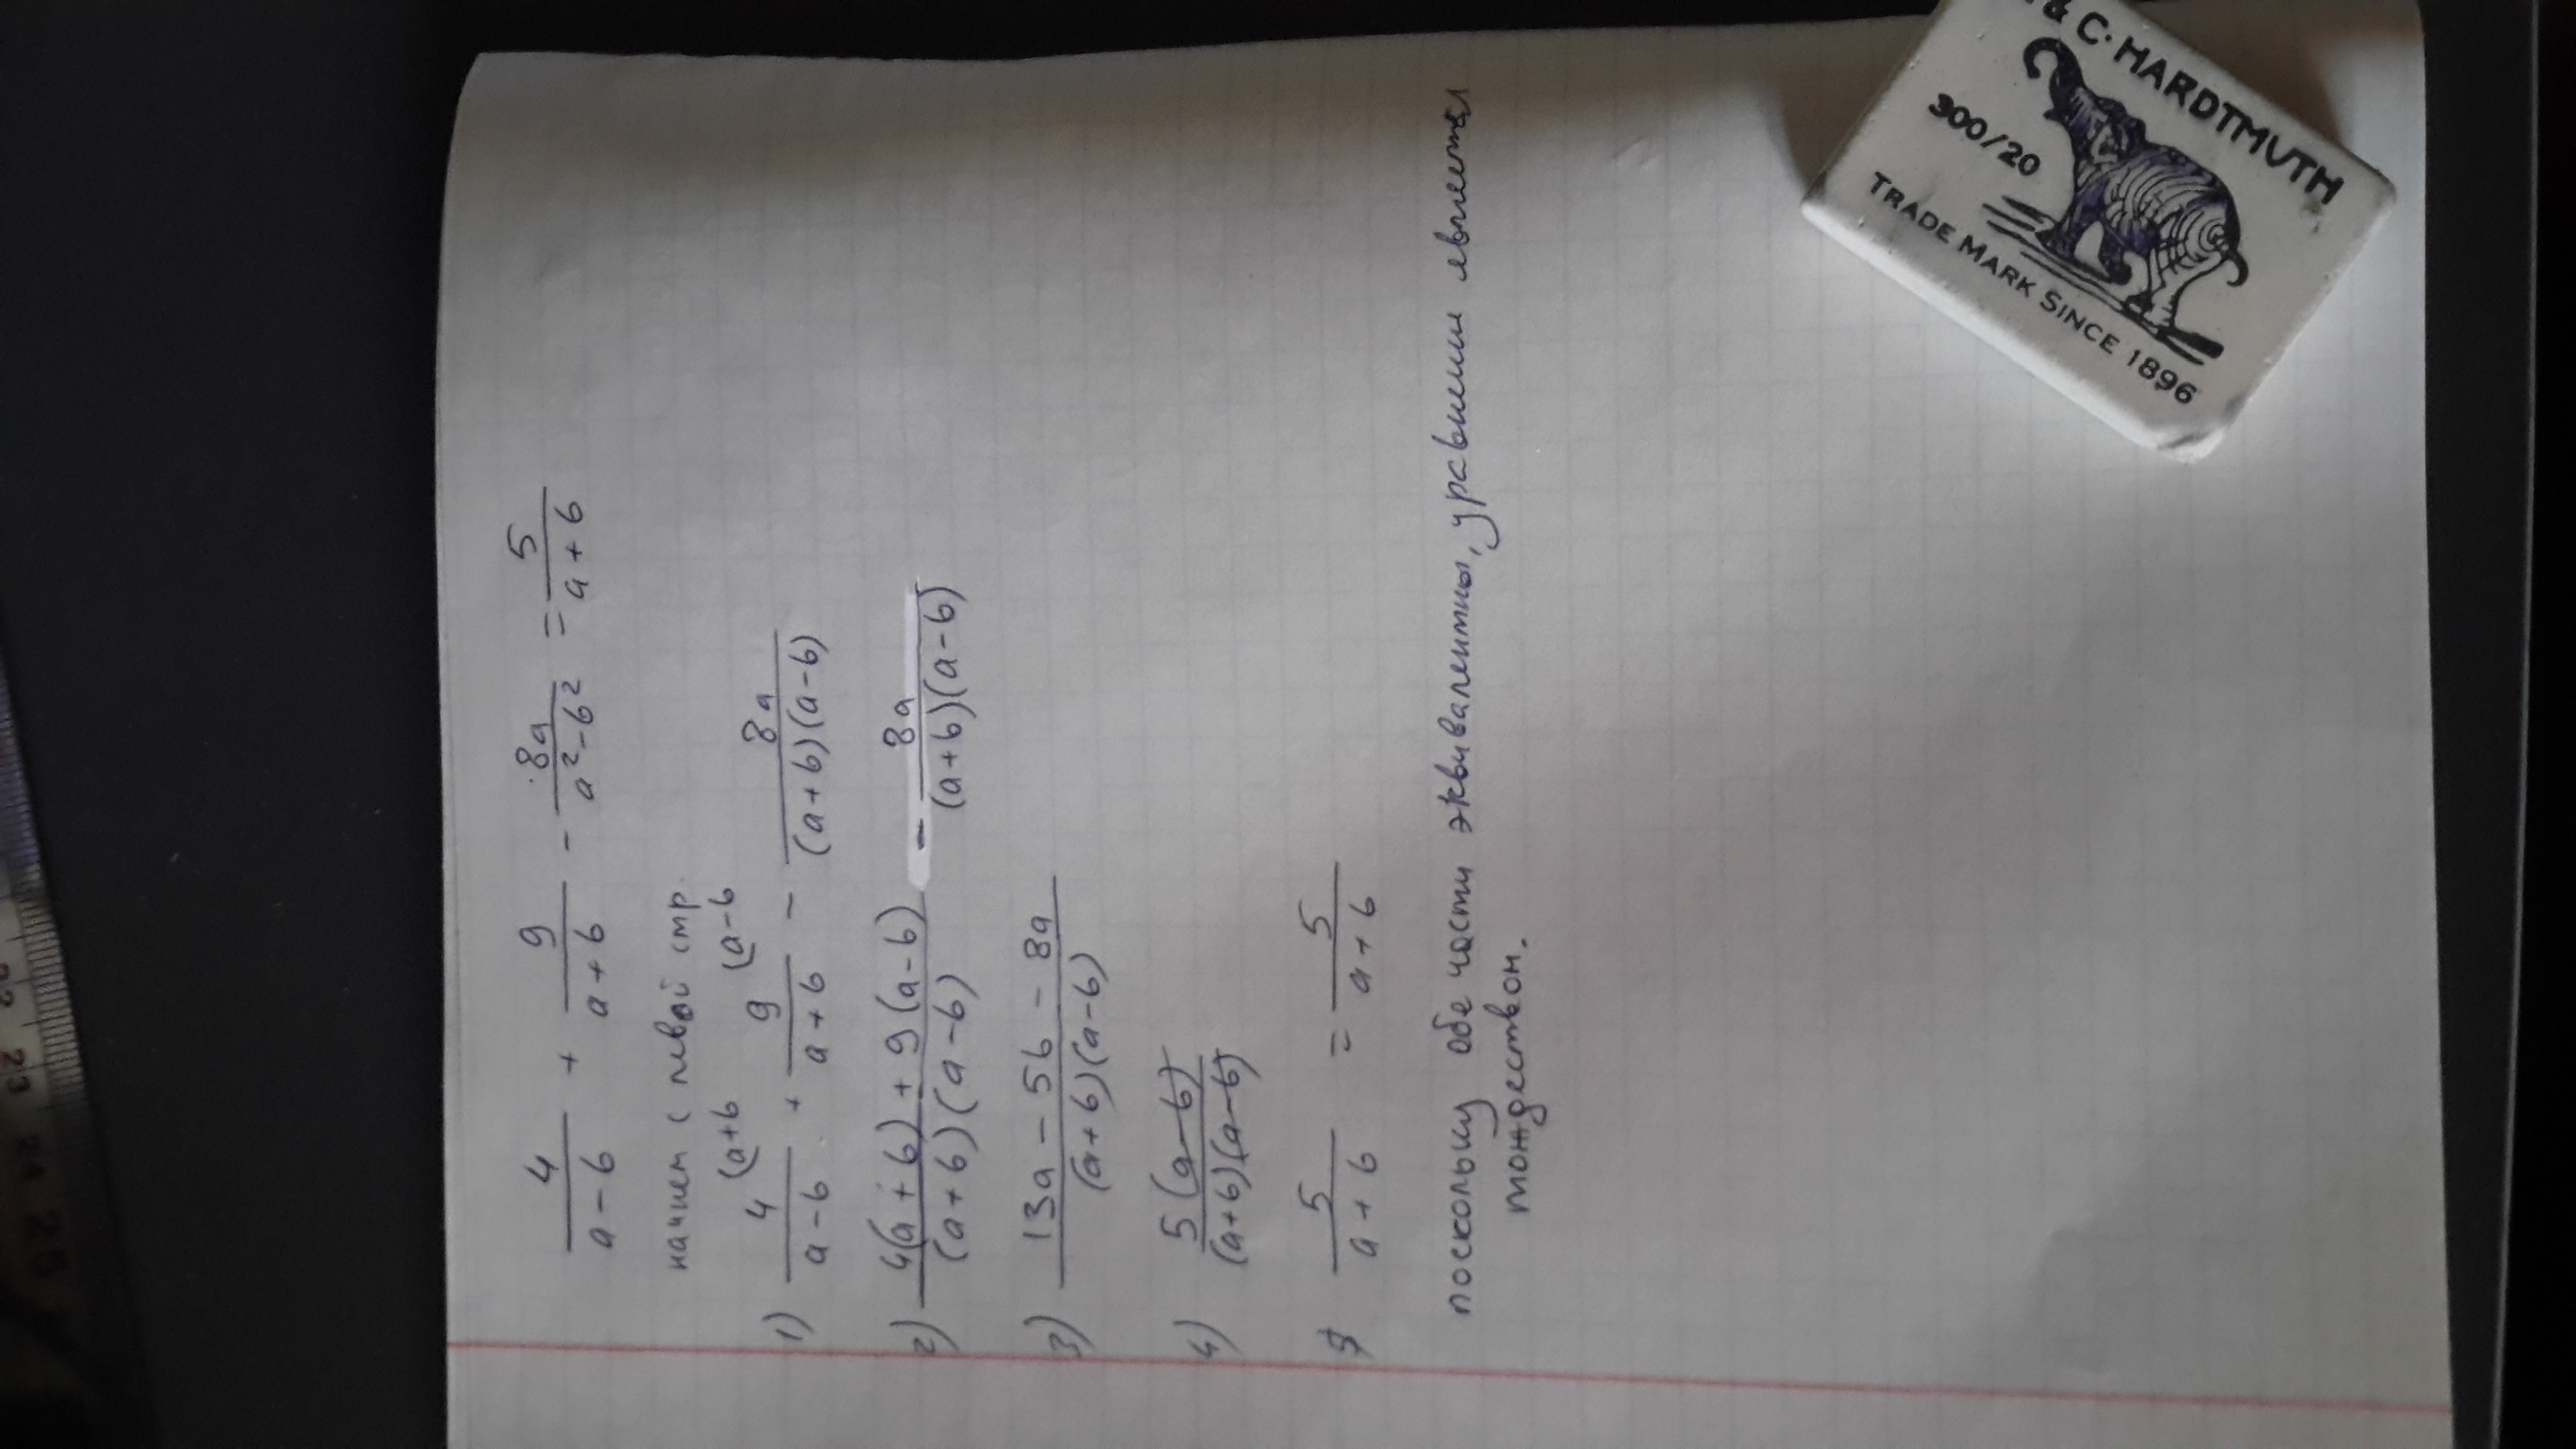 4/(a-b) + 9/(a+b) - 8a/(a²-b²) = 5/(a+b)
начнем с левой стр.
(a+b (a-b
1) 4/(a-b) + 9/(a+b) - 8a/((a+b)(a-b))
2) (4(a+b)+9(a-b))/((a+b)(a-b)) - 8a/((a+b)(a-b))
3) (13a-5b-8a)/((a+b)(a-b))
4) 5(a-b)/((a+b)(a-b))
5/(a+b) = 5/(a+b)
поскольку обе части эквивалентны, уравнении является
тождеством.
& C. HARDTMUTH
300/20
TRADE MARK SINCE 1896
23
24
25